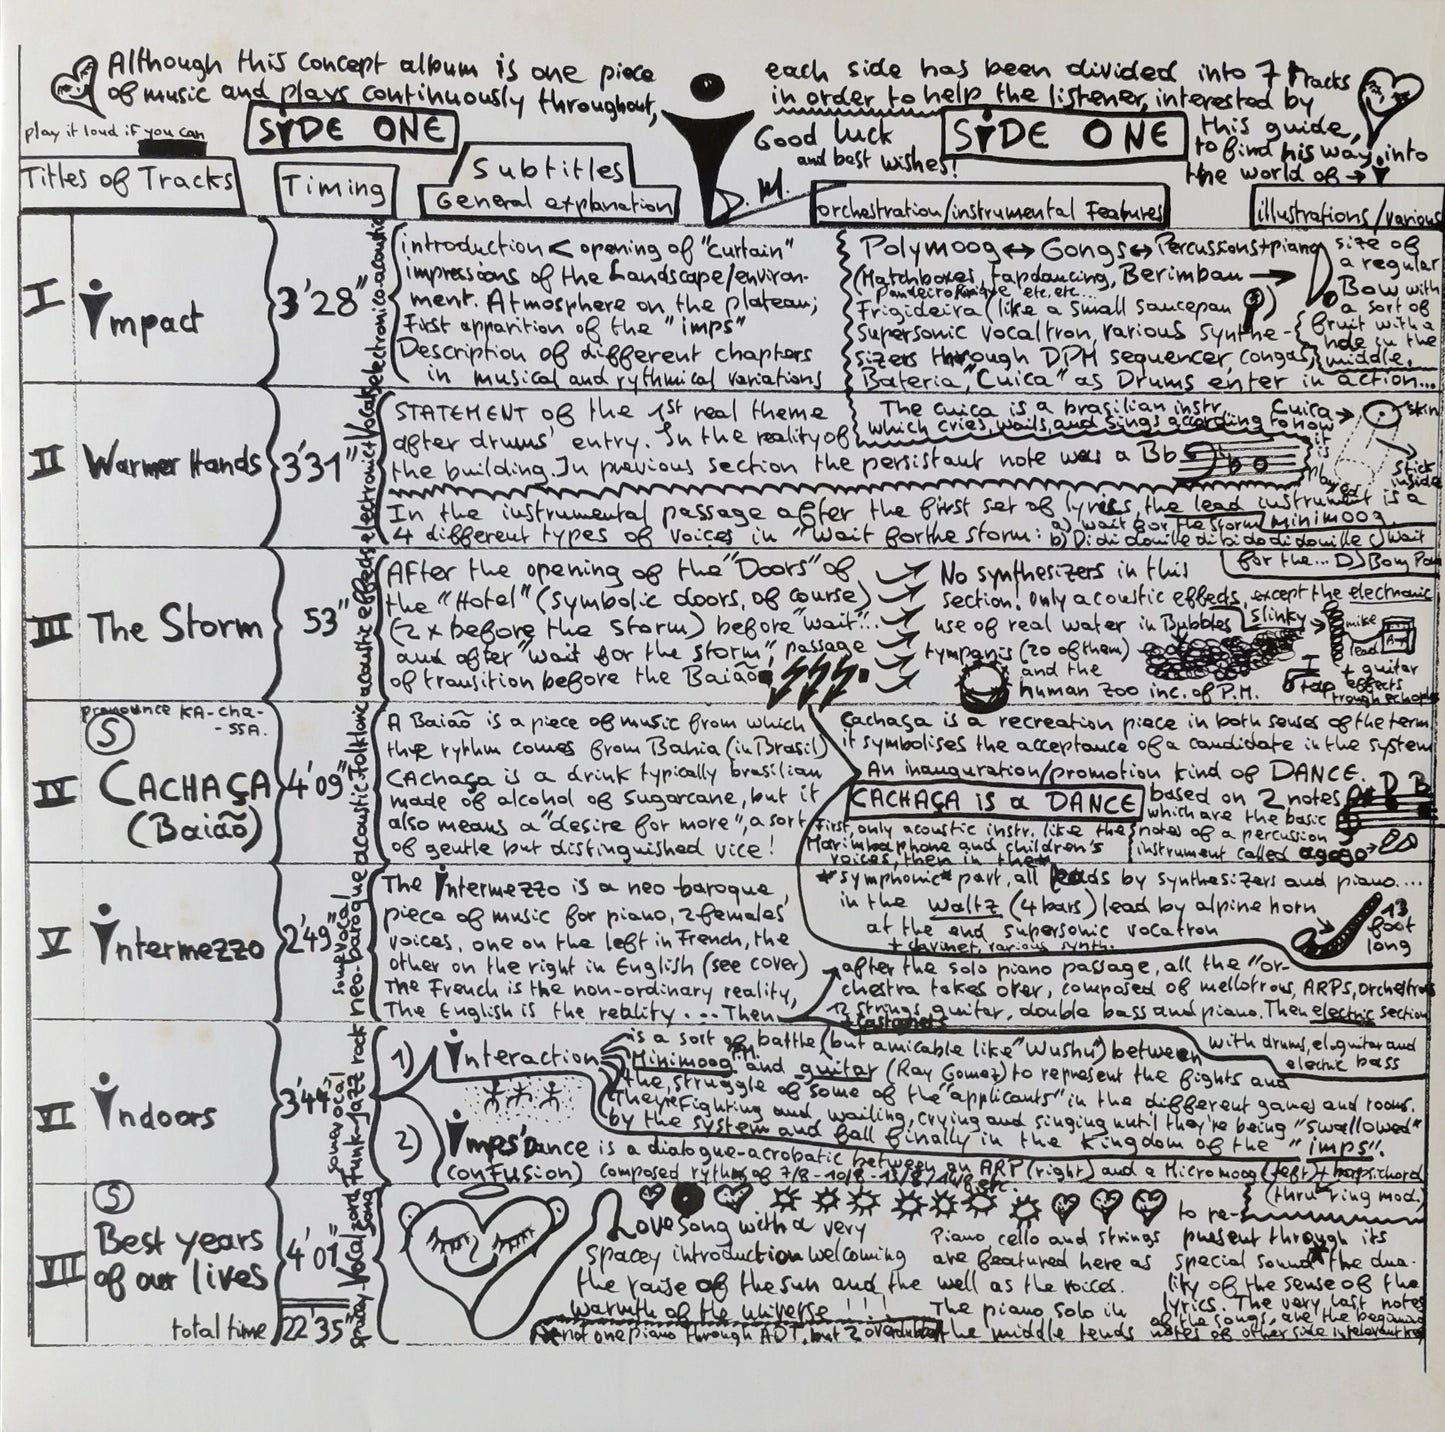 Although this concept album is one piece
of music and plays continuously throughout,
each side has been divided into 7 tracks
in order to help the listener, interested by
this guide,
to find his way into
the world of →
play it loud if you can
SIDE ONE
Good luck
and best wishes!
D. M.
SIDE ONE
Titles of Tracks
Timing
Subtitles
General explanation
orchestration/instrumental Features
illustrations/various
I
impact
3'28"
electronico-acoustic
introduction < opening of "curtain"
impressions of the Landscape/environ-
ment. Atmosphere on the plateau;
First apparition of the "imps"
Description of different chapters
in musical and rythmical variations
Polymoog ↔ Gongs ↔ Percussions + piano
(Matchboxes, tapdancing, Berimbau →
Pandeiro etc, etc...
Frigideira (like a small saucepan )
supersonic vocaltron, various synthe-
sizers through DPM sequencer, congas,
Bateria, "Cuica" as Drums enter in action...
size of
a regular
Bow with
a sort of
fruit with a
hole in the
middle.
II
Warmer Hands
3'31"
electronic+Vocals
STATEMENT of the 1st real theme
after drums' entry. In the reality of
the building. In previous section the persistant note was a Bb
The cuica is a brasilian instr.
which cries, wails, and sings according to how
it
is
played
Cuica →
skin
stick
inside
In the instrumental passage after the first set of lyrics, the lead instrument is a
minimoog.
4 different types of voices in "Wait for the storm: a) wait for the storm
b) Di di douille di bi do di douille c) wait
for the... D) Bom Pom
III
The Storm
53"
acoustic effects
After the opening of the "Doors" of
the "Hotel" (symbolic doors, of course)
(2 x before the storm) before "wait"...
and after "wait for the storm", passage
of transition before the Baião
No synthesizers in this
section! Only acoustic effects, except the electronic
use of real water in Bubbles
slinky →
mike
lead
Amp
tympanis (20 of them)
and the
human zoo inc. of P.M.
+ guitar
effects
trough echoplex
IV
pronounce KA-cha-
-SSA.
S
CACHAÇA
(Baião)
4'09"
acoustic-Folkloric
A Baião is a piece of music from which
the rythm comes from Bahia (in Brasil)
CAchaça is a drink typically brasilian
made of alcohol of sugarcane, but it
also means a "desire for more", a sort
of gentle but distinguished vice!
Cachaça is a recreation piece in both senses of the term
it symbolises the acceptance of a candidate in the system
An inauguration/promotion kind of DANCE.
CACHAÇA is a DANCE
based on 2 notes
D B
which are the basic
notes of a percussion
instrument called agogo →
First, only acoustic instr. like the
Marimbaphone and children's
voices, then in the
*symphonic* part, all leads by synthesizers and piano....
in the waltz (4 bars) lead by alpine horn
at the end supersonic vocatron
+ clavinet, various synth.
13
foot
long
V
intermezzo
2'49"
some vocal
neo-baroque
The intermezzo is a neo-baroque
piece of music for piano, 2 females'
voices, one on the left in French, the
other on the right in English (see cover)
The French is the non-ordinary reality,
The English is the reality.... Then
after the solo piano passage, all the "or-
chestra takes over, composed of mellotrons, ARPS, orchestrons
12 strings guitar, double bass and piano. Then electric section
with drums, el. guitar and
electric bass
VI
indoors
3'44"
some vocal
Funk-Jazz rock
1) interaction
is a sort of battle (but amicable like "Wushu") between
Minimoog P.M. and guitar (Ray Gomez) to represent the fights and
the struggle of some of the "applicants" in the different games and rooms.
They're Fighting and wailing, crying and singing until they're being "swallowed"
by the system and fall finally in the kingdom of the "imps".
2) imps' Dance is a dialogue-acrobatic between an ARP (right) and a Micromoog (left) + harpsichord
(thru ring mod.)
(conFusion) composed rythms of 7/8-10/8-13/8, 14/8 etc.
VII
S
Best years
of our lives
4'01"
spacey Vocal and
song
Love song with a very
spacey introduction welcoming
the raise of the sun and the
warmth of the universe !!!
not one piano through ADT, but 2 overdubbed
Piano cello and strings
are featured here as
well as the voices.
The piano solo in
the middle tends
to re-
present through its
special sound the dua-
lity of the sense of the
lyrics. The very last notes
of the songs, are the beginning
notes of other side
total time 22'35"